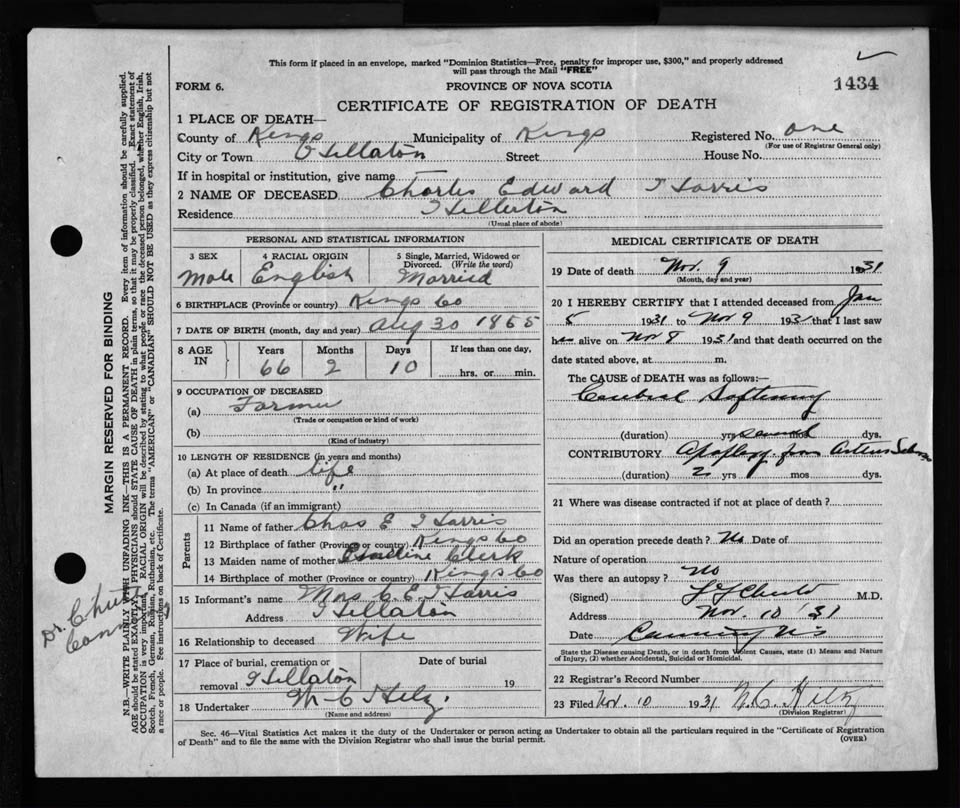 This form if placed in an envelope, marked "Dominion Statistics—Free, penalty for improper use, $300," and properly addressed
will pass through the Mail "FREE"
FORM 6.
PROVINCE OF NOVA SCOTIA
1434
CERTIFICATE OF REGISTRATION OF DEATH
1 PLACE OF DEATH—
County of Kings Municipality of Kings Registered No. one
(For use of Registrar General only)
City or Town Hillaton Street House No.
If in hospital or institution, give name
2 NAME OF DECEASED Charles Edward Harris
Residence Hillaton
(Usual place of abode)
PERSONAL AND STATISTICAL INFORMATION
3 SEX 4 RACIAL ORIGIN 5 Single, Married, Widowed or
Divorced. (Write the word)
Male English Married
6 BIRTHPLACE (Province or country) Kings Co
7 DATE OF BIRTH (month, day and year) Aug 30 1865
8 AGE IN Years Months Days If less than one day,
66 2 10 hrs. or min.
9 OCCUPATION OF DECEASED
(a) Farmer
(Trade or occupation or kind of work)
(b)
(Kind of industry)
10 LENGTH OF RESIDENCE (in years and months)
(a) At place of death life
(b) In province "
(c) In Canada (if an immigrant)
Parents
11 Name of father Chas E Harris
12 Birthplace of father (Province or country) Kings Co
13 Maiden name of mother Clerk
14 Birthplace of mother (Province or country) Kings Co
15 Informant's name Mrs C. E. Harris
Address Hillaton
16 Relationship to deceased Wife
17 Place of burial, cremation or Date of burial
removal Hillaton 19
18 Undertaker W. C. Hiltz.
(Name and address)
MEDICAL CERTIFICATE OF DEATH
19 Date of death Nov. 9 1931
(Month, day and year)
20 I HEREBY CERTIFY that I attended deceased from Jan
5 1931 to Nov 9 1931 that I last saw
him alive on Nov 8 1931 and that death occurred on the
date stated above, at m.
The CAUSE of DEATH was as follows:—
Cerebral Softening
(duration) yrs several mos dys.
CONTRIBUTORY Apoplexy from
(duration) 2 yrs mos dys.
21 Where was disease contracted if not at place of death?
Did an operation precede death? No Date of
Nature of operation
Was there an autopsy? No
(Signed) M.D.
Address Nov. 10 '31
Date Canning N.S
State the Disease causing Death, or in death from Violent Causes, state (1) Means and Nature
of Injury, (2) whether Accidental, Suicidal or Homicidal.
22 Registrar's Record Number
23 Filed Nov. 10 1931 W. C. Hiltz
(Division Registrar)
Sec. 46—Vital Statistics Act makes it the duty of the Undertaker or person acting as Undertaker to obtain all the particulars required in the "Certificate of Registration
of Death" and to file the same with the Division Registrar who shall issue the burial permit.
(OVER)
MARGIN RESERVED FOR BINDING
N.B.—WRITE PLAINLY WITH UNFADING INK—THIS IS A PERMANENT RECORD. Every item of information should be carefully supplied.
AGE should be stated EXACTLY. PHYSICIANS should STATE CAUSE OF DEATH in plain terms, so that it may be properly classified. Exact statement of
OCCUPATION is very important. RACIAL ORIGIN will be described by stating to what people or race the deceased person belonged, whether English, Irish,
Scotch, French, German, Russian, Ruthenian, etc. The terms "AMERICAN" or "CANADIAN" SHOULD NOT BE USED as they express citizenship but not
a race or people. Fee instructions on back of Certificate.
Dr. Chute